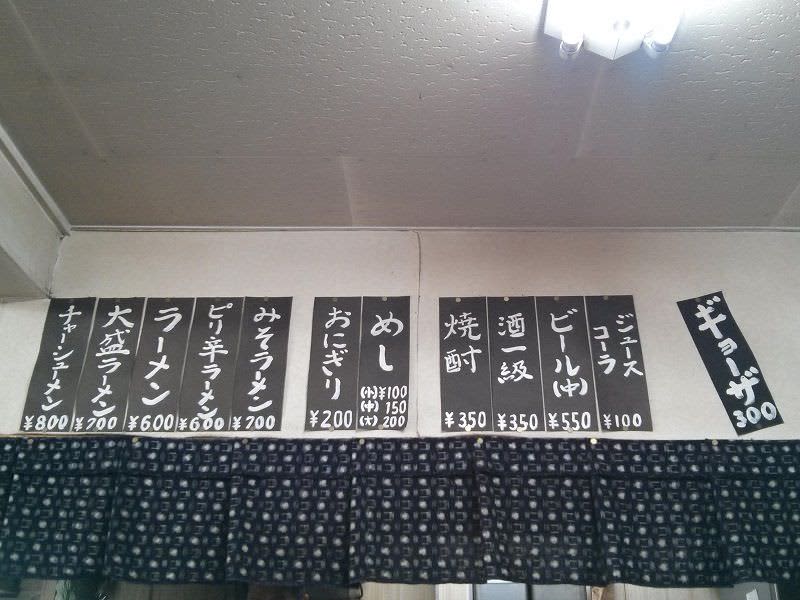 チャーシューメン
¥800
大盛ラーメン
¥700
ラーメン
¥600
ピリ辛ラーメン
¥600
みそラーメン
¥700
おにぎり
¥200
めし
(小)¥100
(中)150
(大)200
焼酎
¥350
酒一級
¥350
ビール(中)
¥550
ジュース
コーラ
¥100
ギョーザ
300